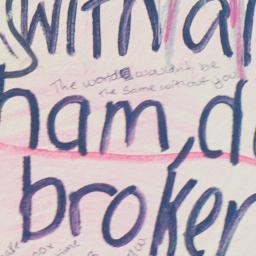 with a
The world wouldn't be
the same without you
ham, d
broker